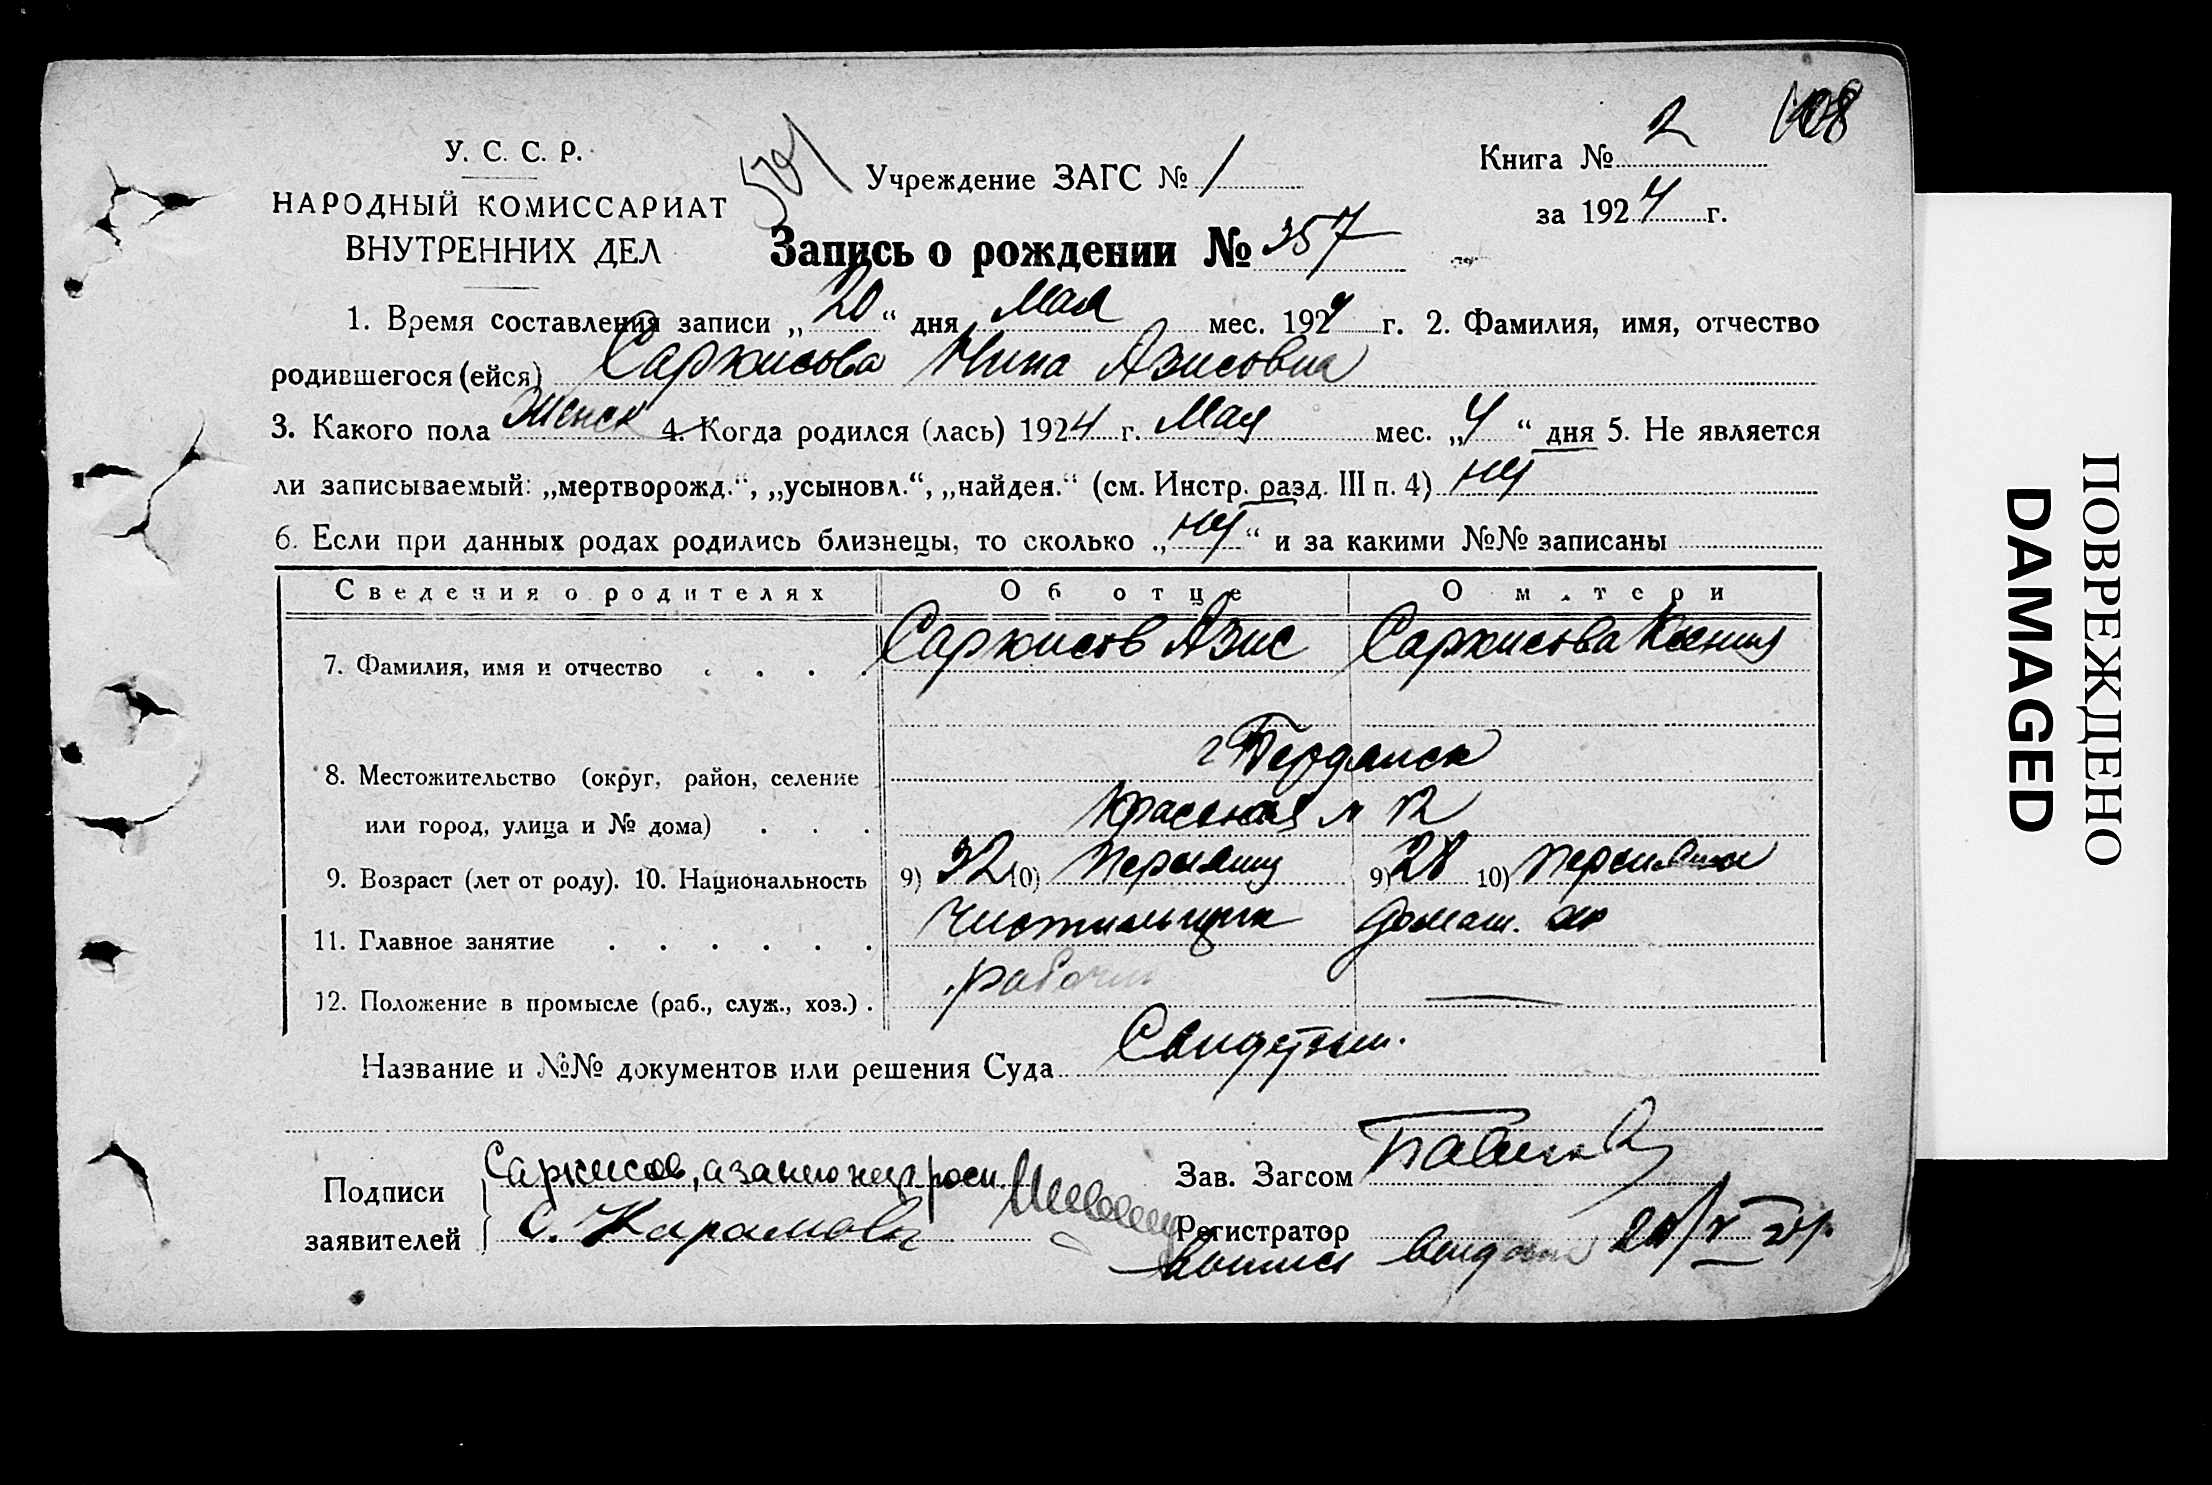 108
У. С. С. Р.
НАРОДНЫЙ КОМИССАРИАТ
ВНУТРЕННИХ ДЕЛ
Учреждение ЗАГС № 1
Книга № 2
за 1924 г.
Запись о рождении № 357
1. Время составления записи „20“ дня Мая мес. 1924 г. 2. Фамилия, имя, отчество
родившегося (ейся) Саркисова Нина Азисовна
3. Какого пола Женск 4. Когда родился (лась) 1924 г. Мая мес. „4“ дня 5. Не является
ли записываемый: „мертворожд.“, „усыновл.“, „найден.“ (см. Инстр. разд. III п. 4) нет
6. Если при данных родах родились близнецы, то сколько „нет“ и за какими №№ записаны
Сведения о родителях Об отце О матери
7. Фамилия, имя и отчество . . . . Саркисов Азис Саркисова Ксения
г Бердянск
8. Местожительство (округ, район, селение
или город, улица и № дома) . . . Красная № 12
9. Возраст (лет от роду). 10. Национальность 9) 32 10) Персиянин 9) 28 10) персиянка
11. Главное занятие . . . . . . Чистильщик домаш. хоз
12. Положение в промысле (раб., служ., хоз.) . рабочий
Название и №№ документов или решения Суда Свидетели.
Подписи
заявителей
Саркисов, а за него неграмотн
С. Карамова
Зав. Загсом
Регистратор
выпись выдана 20/V 24г.
ПОВРЕЖДЕНО
DAMAGED